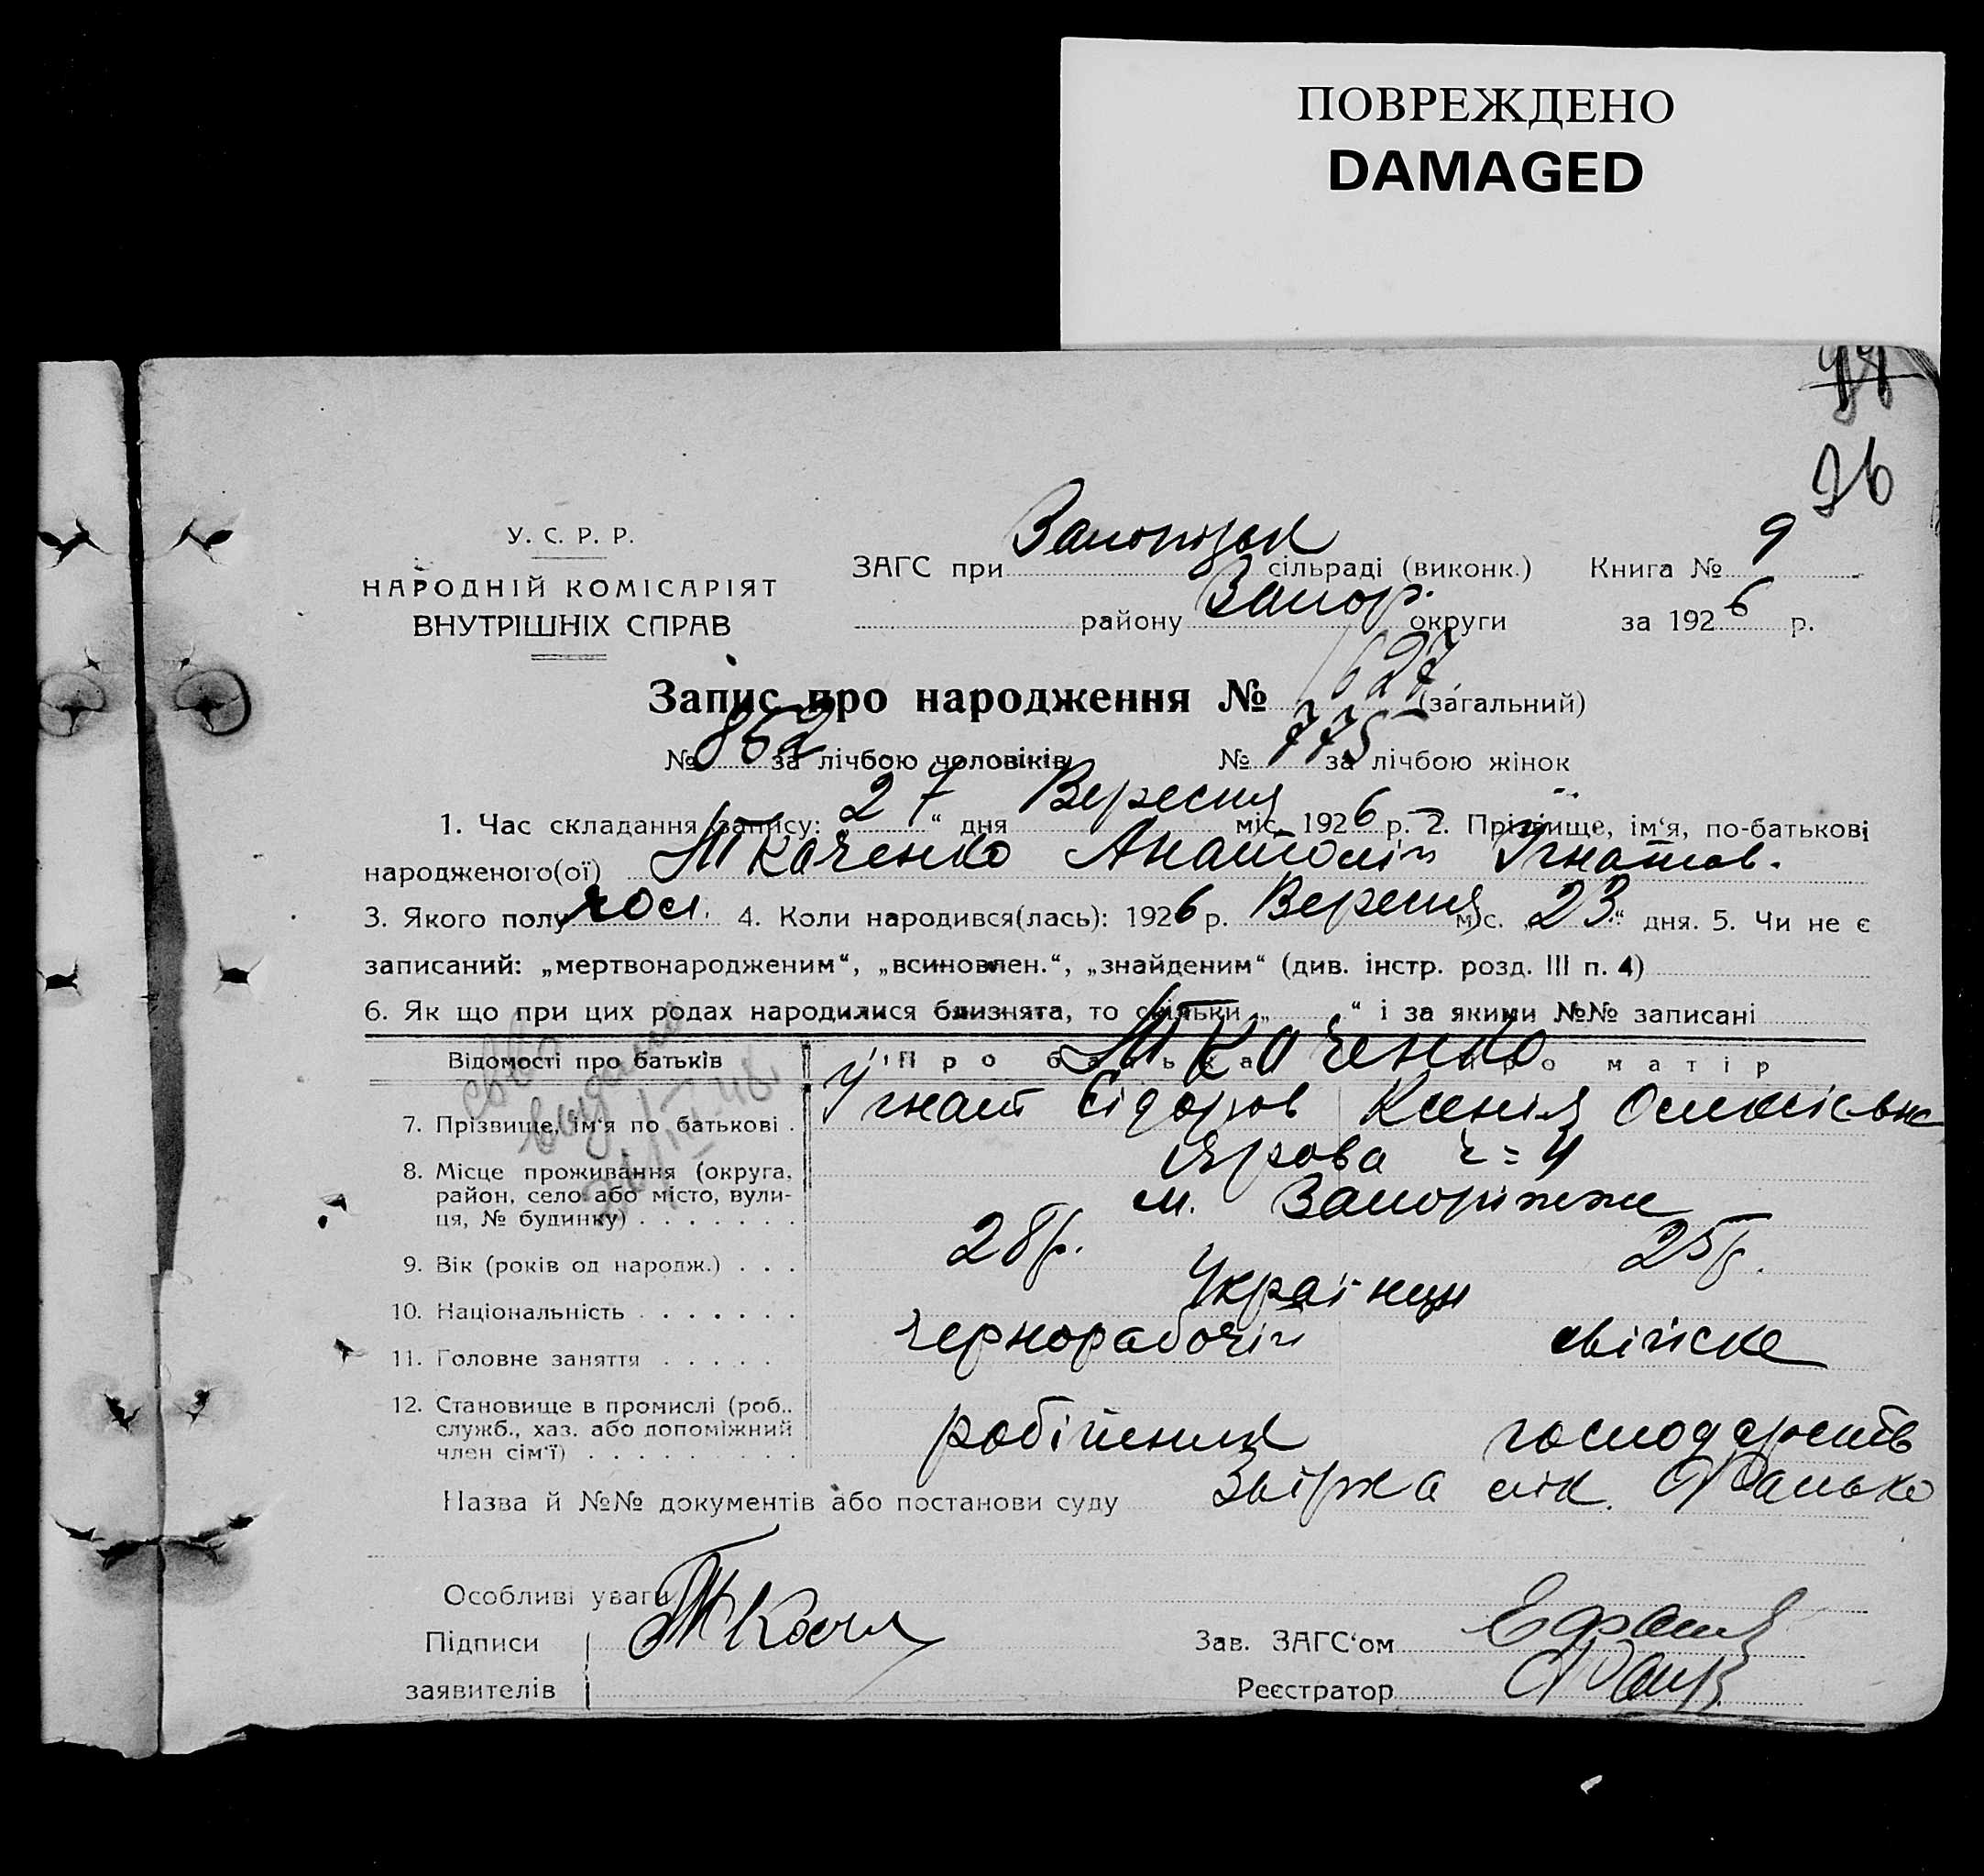 ПОВРЕЖДЕНО
DAMAGED
26
У. С. Р. Р.
НАРОДНІЙ КОМІСАРІЯТ
ВНУТРІШНІХ СПРАВ
ЗАГС при сільраді (виконк.) Книга № 9
району Запор. округи за 1926 р.
Запис про народження № 1627 (загальний)
№ 862 за лічбою чоловіків № 775 за лічбою жінок
1. Час складання запису: 27 “ дня Вересня міс. 1926 р. 2. Прізвище, ім‘я, по-батькові
народженого(ої) Ткаченко Анатолій Ігнатов.
3. Якого полу чол. 4. Коли народився(лась): 1926 р. Вересня міс. „23“ дня. 5. Чи не є
записаний: „мертвонародженим“, „всиновлен.“, „знайденим“ (див. інстр. розд. III п. 4)
6. Як що при цих родах народилися близнята, то скільки „ “ і за якими №№ записані
Відомості про батьків Про батька Про матір
Ткаченко
7. Прізвище, ім‘я по батькові . Ігнат Сідоров Ксенія
8. Місце проживання (округа,
район, село або місто, вули-
ця, № будинку) . . . . . . .
Ярова ч=4
м. Запоріжжя
видано
9. Вік (років од народж.) . . . 28р. 25р.
10. Національність . . . . . . . Українці
11. Головне заняття . . . . . чернорабочій свійске
12. Становище в промислі (роб.,
служб., хаз. або допоміжний
член сім‘ї) . . . . . . . . .
робітник господарств
Назва й №№ документів або постанови суду Звірка
Особливі уваги
Підписи
заявителів
Зав. ЗАГС‘ом
Реєстратор